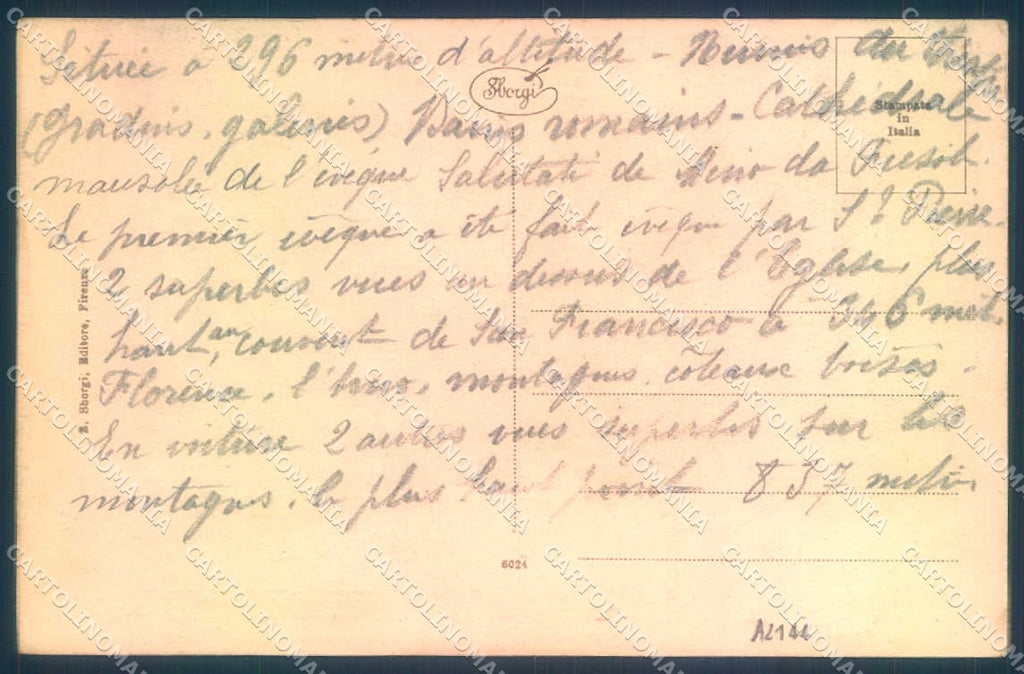 Située à 296 mètres d'altitude - Ruines du
(gradins, galeries) Bains romains - Cathédrale
mausolée de l'évêque Salutati de Mino da Fiesole.
Le premier évêque a été fait évêque par St Pierre.
2 superbes vues en dessous de l'Eglise, plus
haut, au couvent de San Francisco à 346 met.
Florence, l'Arno, montagnes, côteaux boisés.
En voiture 2 autres vues superbes sur les
montagnes, le plus haut point 837 metres
Sborgi
Stampata
in
Italia
E. Sborgi, Editore, Firenze
6024
AZ144
CARTOLINOMANIA